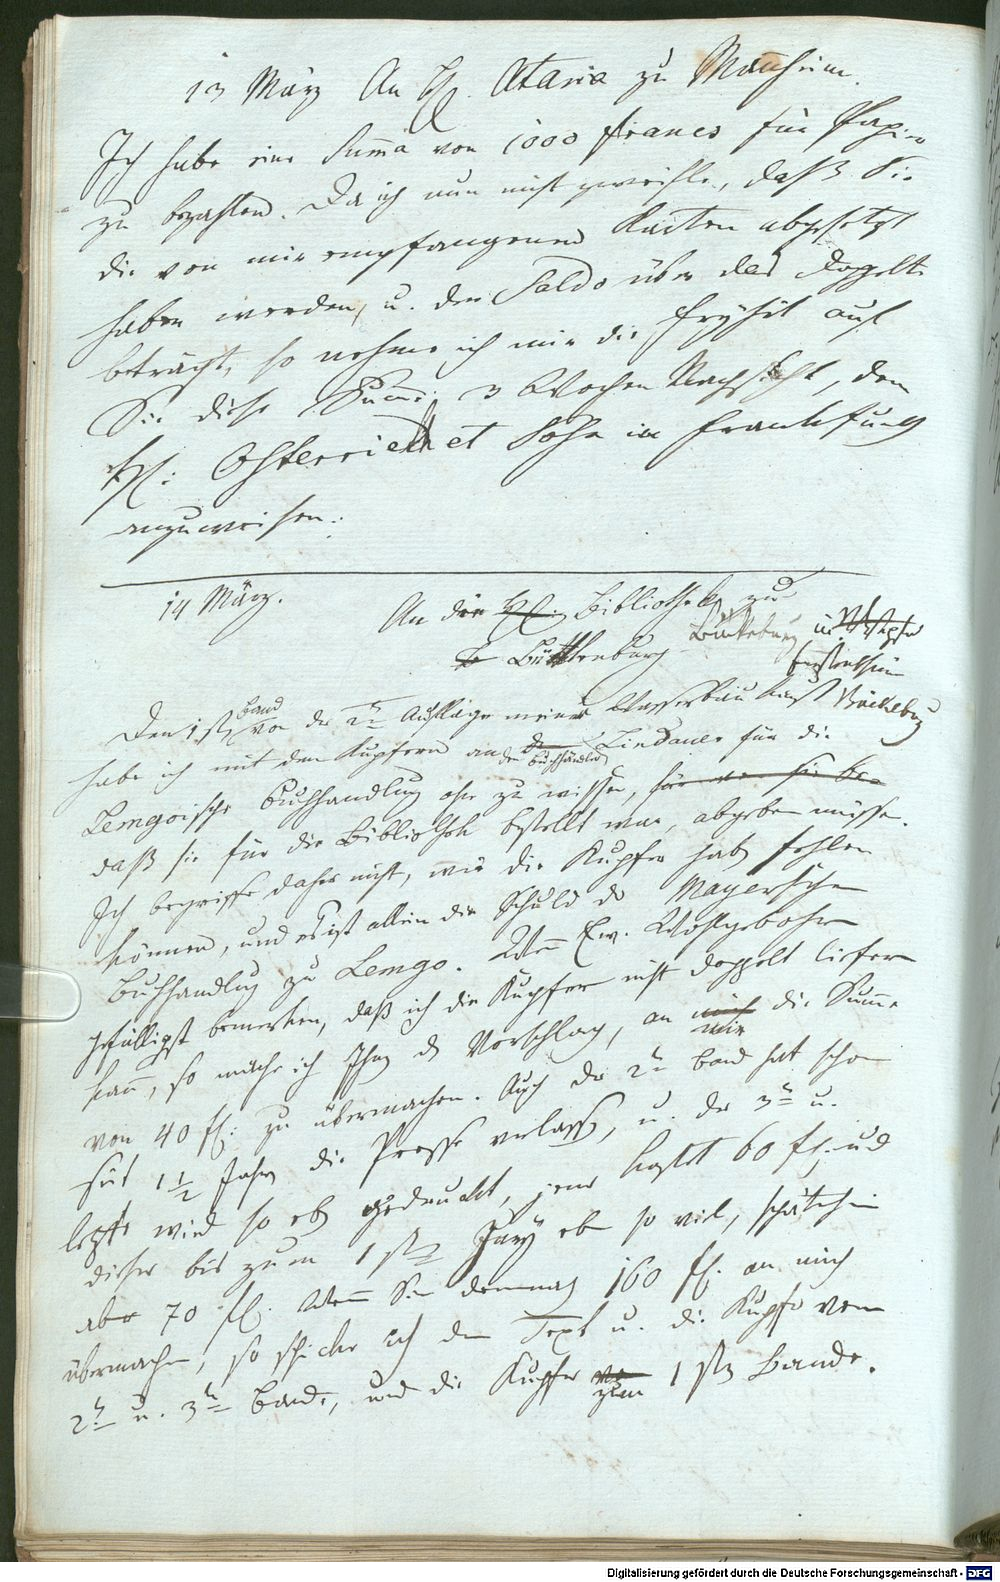 13 März An H. Artaria zu Manheim.
Ich habe eine Summa von 1000 Francs für Papier
zu bezahlen. Da ich nun nicht zweifle, daß Sie
die von mir empfangenen Karten abgesetzt
haben werden, u. der Saldo über das doppelte
beträgt, so nehme ich mir die Freyheit auf
Sie diese Summe 3 Wochen Nachsicht, dem
H: Osterriedt et Sohn in Frankfurt
anzuweisen.
14 März. An die H. Bibliothek zu
Bückeburg in
Fürstenthum
Bückeburg
Den 1sten Band von der 2ten Auflage meiner Wasserbaukunst
habe ich mit den Kupfern an den Buchhändler Lindauer für die
Lemgoische Buchhandlung ohne zu wissen, für wen sie be-
daß sie für die Bibliothek bestellt war, abgeben müssen.
Ich begreiffe daher nicht, wie die Kupfer haben fehlen
können, und es ist allein die Schuld der Mayerschen
Buchhandlung zu Lemgo. Wenn Ew. Wohlgebohren
gefälligst bemerken, daß ich die Kupfer nicht doppelt liefern
kann, so mache ich Ihnen den Vorschlag, an mich mir die Summe
von 40 fl: zu übermachen. Auch der 2te Band hat schon
seit 1 1/2 Jahren die Presse verlassen, u. der 3te u.
letzte wird so eben gedruckt, jener kostet 60 fl. und
dieser bis zum 1sten Juny eben so viel, späterhin
aber 70 fl. Wenn Sie demnach 160 fl. an mich
übermachen, so schicke ich den Text u. die Kupfer vom
2ten u. 3ten Bande, und die Kupfer zum 1sten Bande.
Digitalisierung gefördert durch die Deutsche Forschungsgemeinschaft - DFG